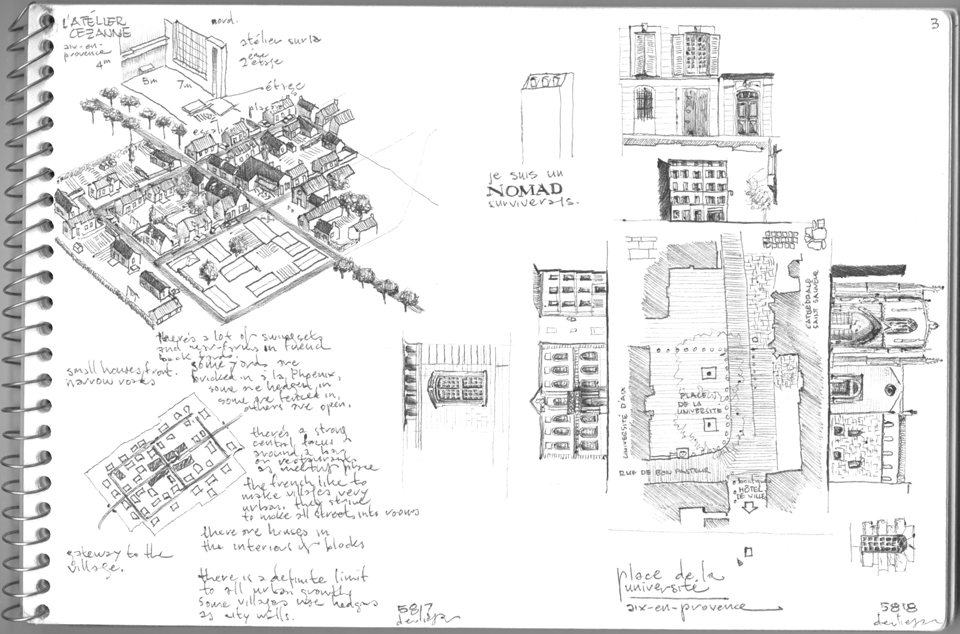 L'ATÉLIER
CEZANNE
aix-en-
provence
nord.
4m
5m
7m
atélier sur la
2eme
étage
je suis un
NOMAD
there's a lot of
and in french
back yards.
some yards are
bricked in a la Phoenix,
some are hedged in
some are fenced in,
others are open.
small houses, front.
narrow roads
there's a strong
central focus
around a bar
or restaurant
as meeting place
the french like to
make villages very
urban. they strive
to make all streets into rooms
there are houses in
the interiors of blocks
gateway to the
village.
there is a definite limit
to all urban growth
some villages use hedges
as city walls.
5817
3
CATHEDRALE
SAINT SAUVEUR
UNIVERSITÉ D'AIX
PLACE
DE LA
UNIVERSITÉ
RUE DE BON PASTEUR
HÔTEL
DE VILLE
place de la
université
aix-en-provence
5818